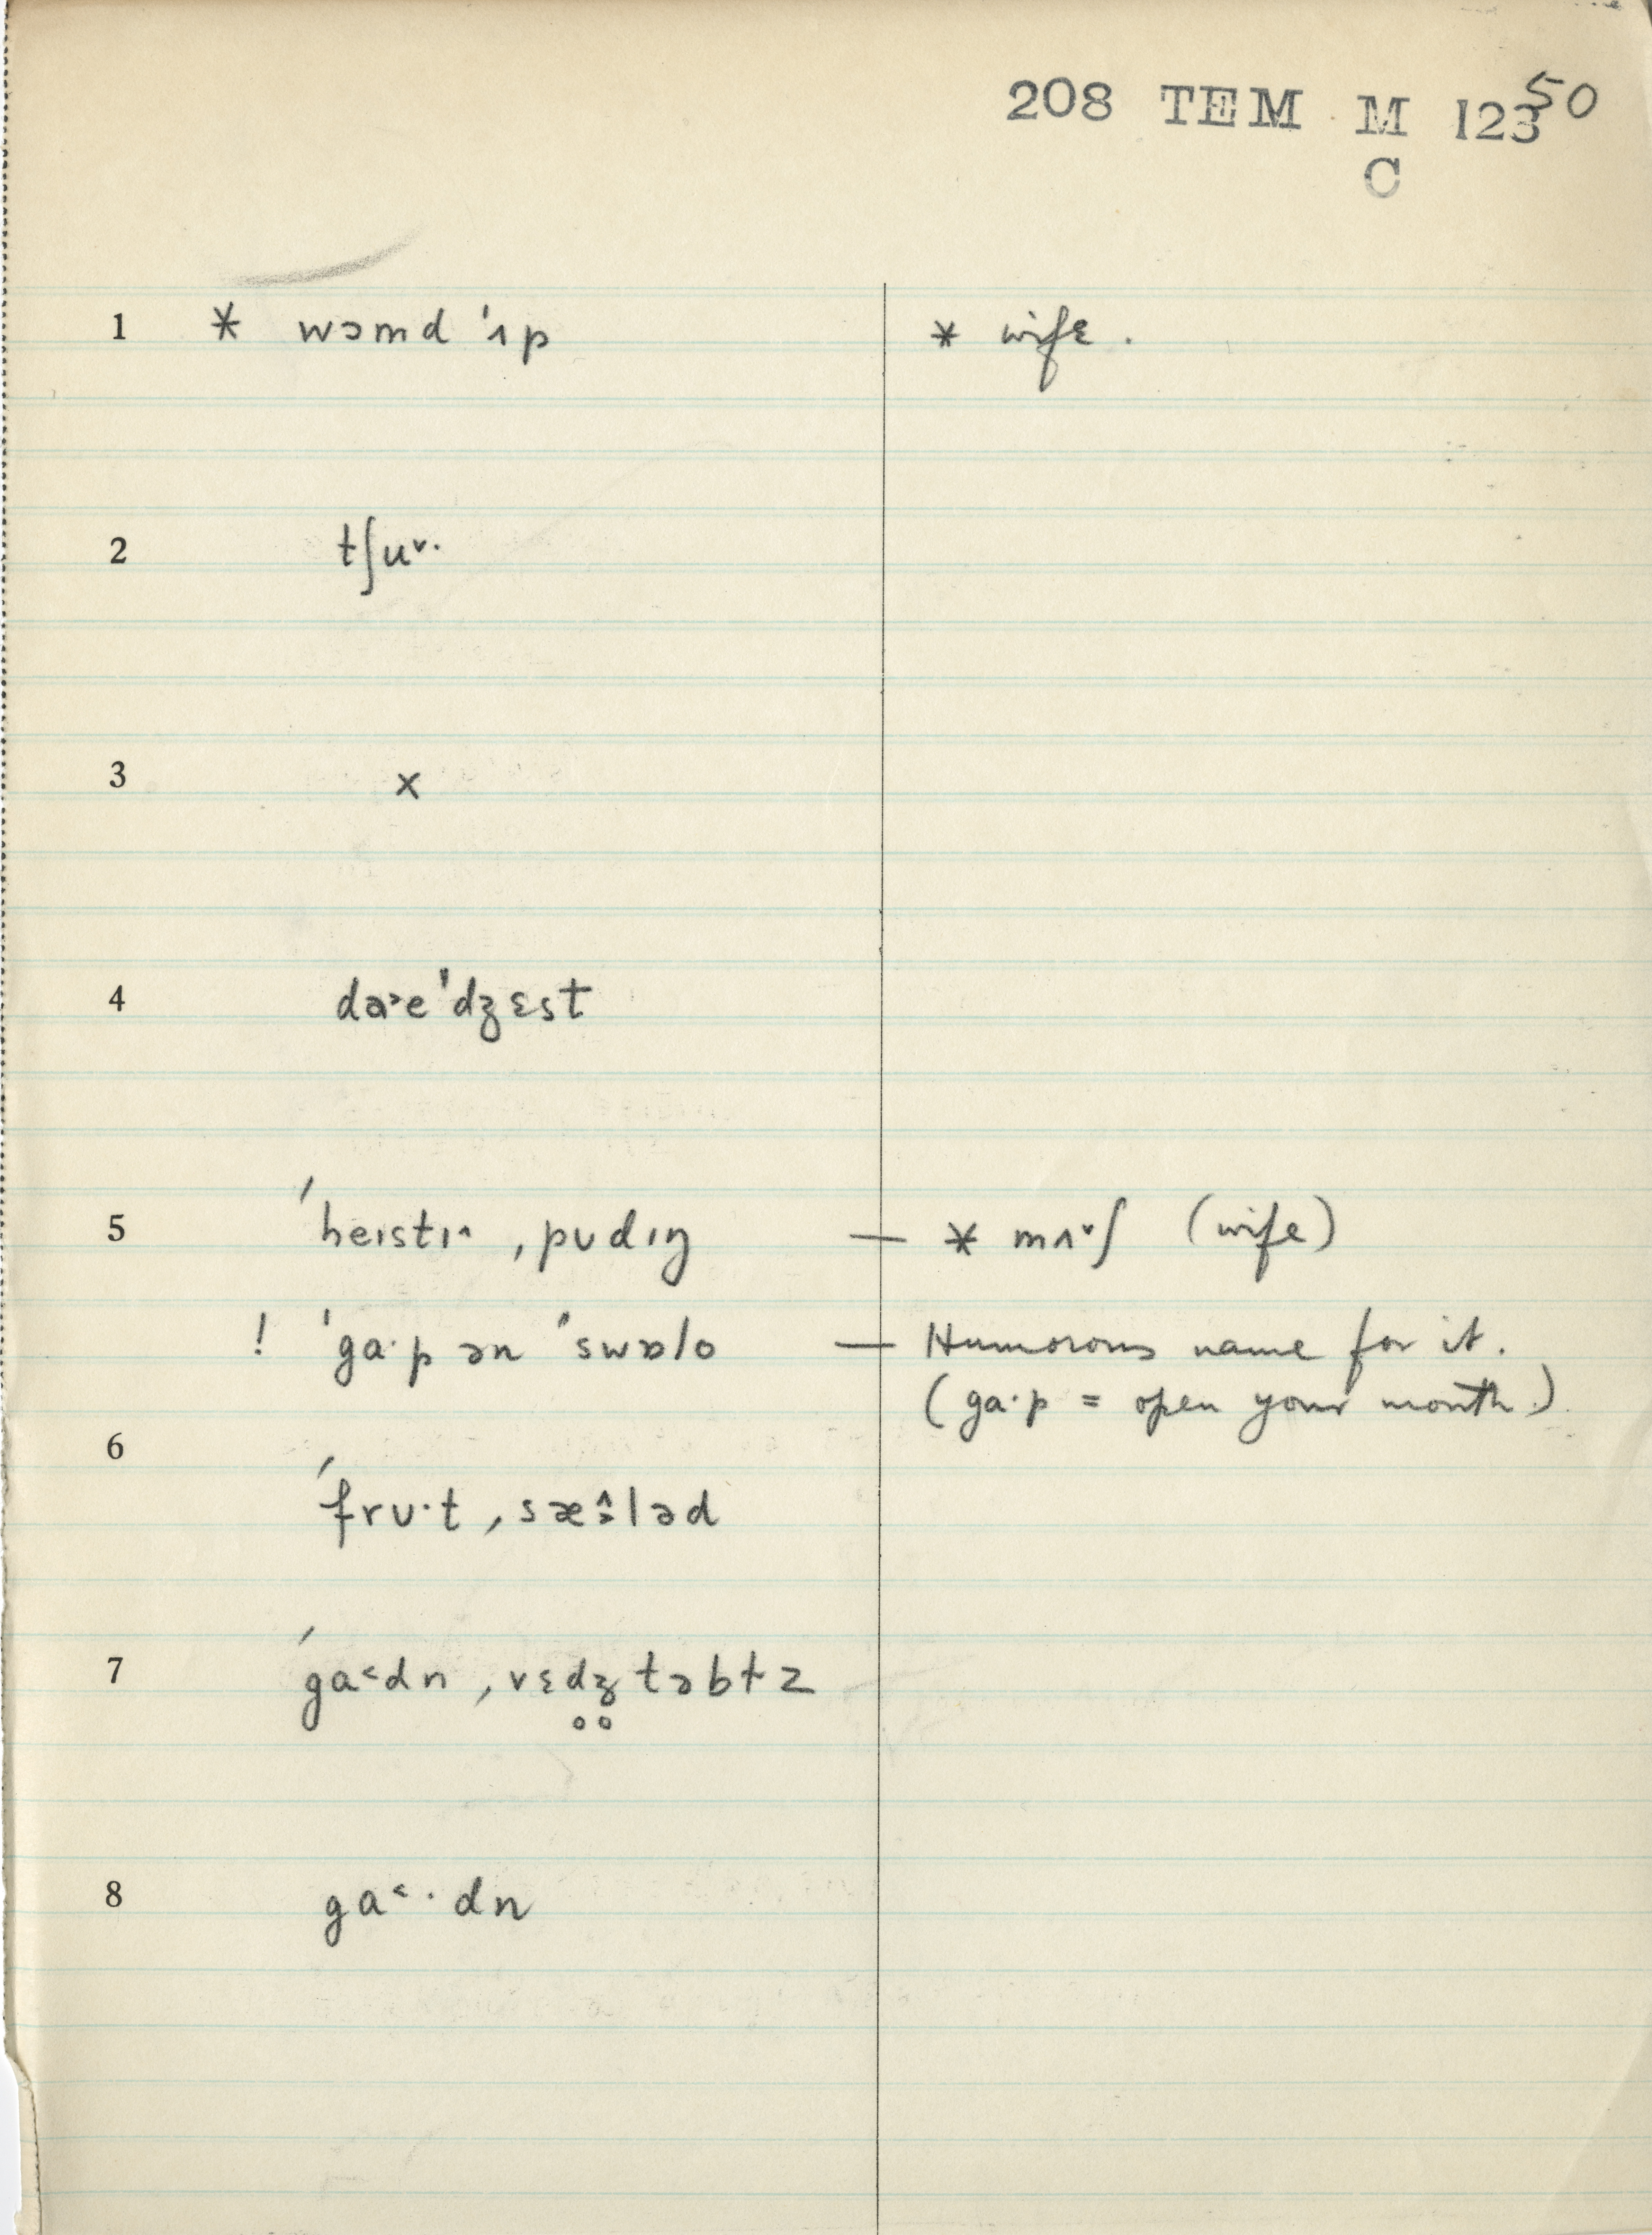 208 TEM M 123 50
C
1 * wɔmd 'ʌp * wife .
2 tʃu˅·
3 x
4 dɑ˃e'dʒɛst
5 'heɪstɪ^ ,pʊdɪŋ — * mʌ˅ʃ (wife)
! 'ga·p ən 'swɒlo — Humorous name for it.
(ga·p = open your mouth.)
6
'frʊ·t ,sæ^˃ləd
7 'ga˂dn ,vɛdʒ̥təbɫz
8 ga˂·dn